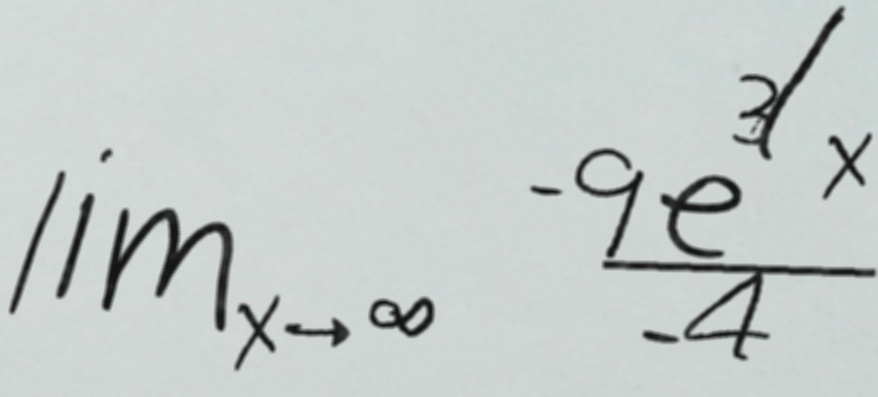 lim x→∞ -9e^3/x / -4